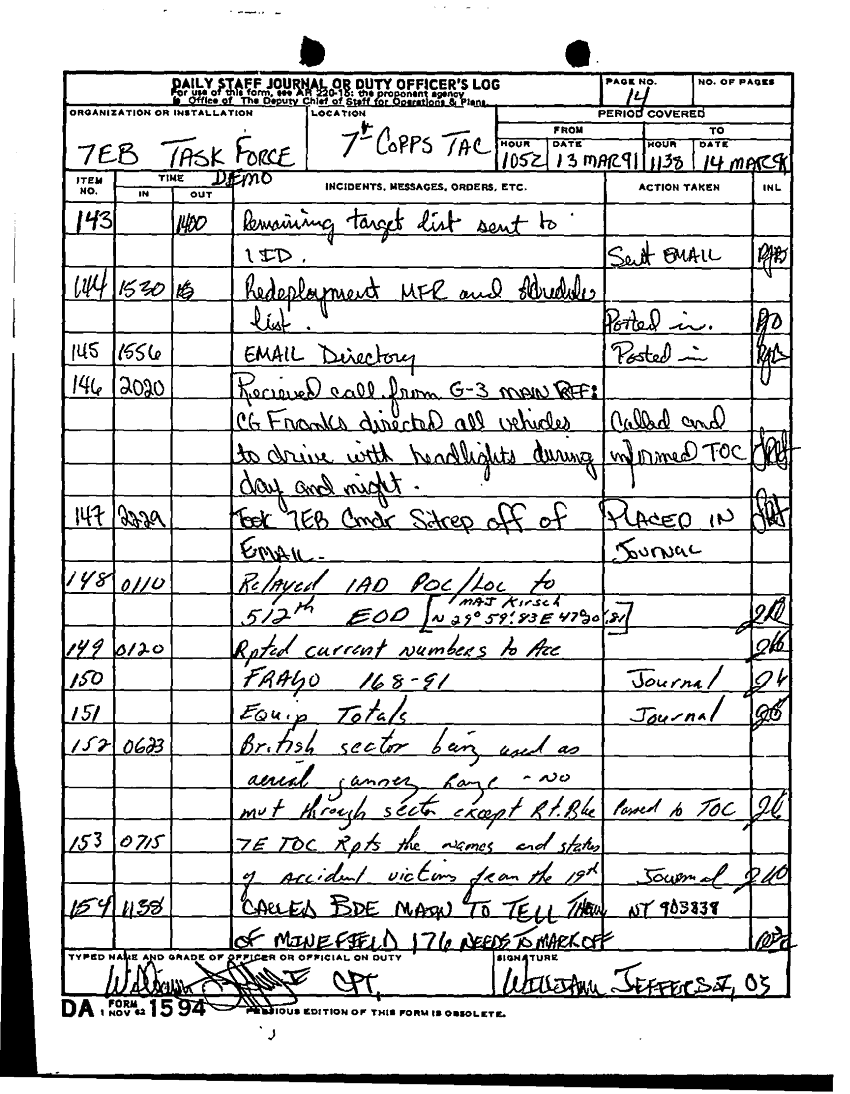 DAILY STAFF JOURNAL OR DUTY OFFICER'S LOG
For use of this form, see AR 220-15; the proponent agency
is Office of The Deputy Chief of Staff for Operations & Plans.
PAGE NO.
14
NO. OF PAGES
ORGANIZATION OR INSTALLATION
7EB TASK FORCE
DEMO
LOCATION
7th CORPS TAC
PERIOD COVERED
FROM TO
HOUR DATE HOUR DATE
1052 13 MAR 91 1138 14 MAR 91
ITEM NO. TIME IN OUT INCIDENTS, MESSAGES, ORDERS, ETC. ACTION TAKEN INL
143 1400 Remaining target list sent to
1 ID. Sent EMAIL
144 1530 Redeployment MFR and schedules
list. Posted in.
145 1556 EMAIL Directory Posted in
146 2020 Recieved call from G-3 MAIN REF:
CG Franks directed all vehicles Called and
to drive with headlights during informed TOC
day and night.
147 2229 Took 7EB Cmdr Sitrep off of PLACED IN
EMAIL. JOURNAL
148 0110 Relayed 1AD POC/Loc to
512th EOD [MAJ Kirsch
N 29° 59'.83 E 47° 20'.81]
149 0120 Rpted current numbers to
150 FRAGO 168-91 Journal
151 Equip Totals Journal
152 0623 British sector being used as
aerial gunnery range - NO
mvt through sector except Rt. Blue Passed to TOC
153 0715 7E TOC Rpts the names and status
of accident victims from the 19th Journal
154 1138 CALLED BDE MAIN TO TELL THEM NT 903838
OF MINEFIELD 176 NEEDS TO MARK OFF
TYPED NAME AND GRADE OF OFFICER OR OFFICIAL ON DUTY
William CPT,
SIGNATURE
WILLIAM JEFFERS II, O3
DA FORM 1594
1 NOV 62
PREVIOUS EDITION OF THIS FORM IS OBSOLETE.